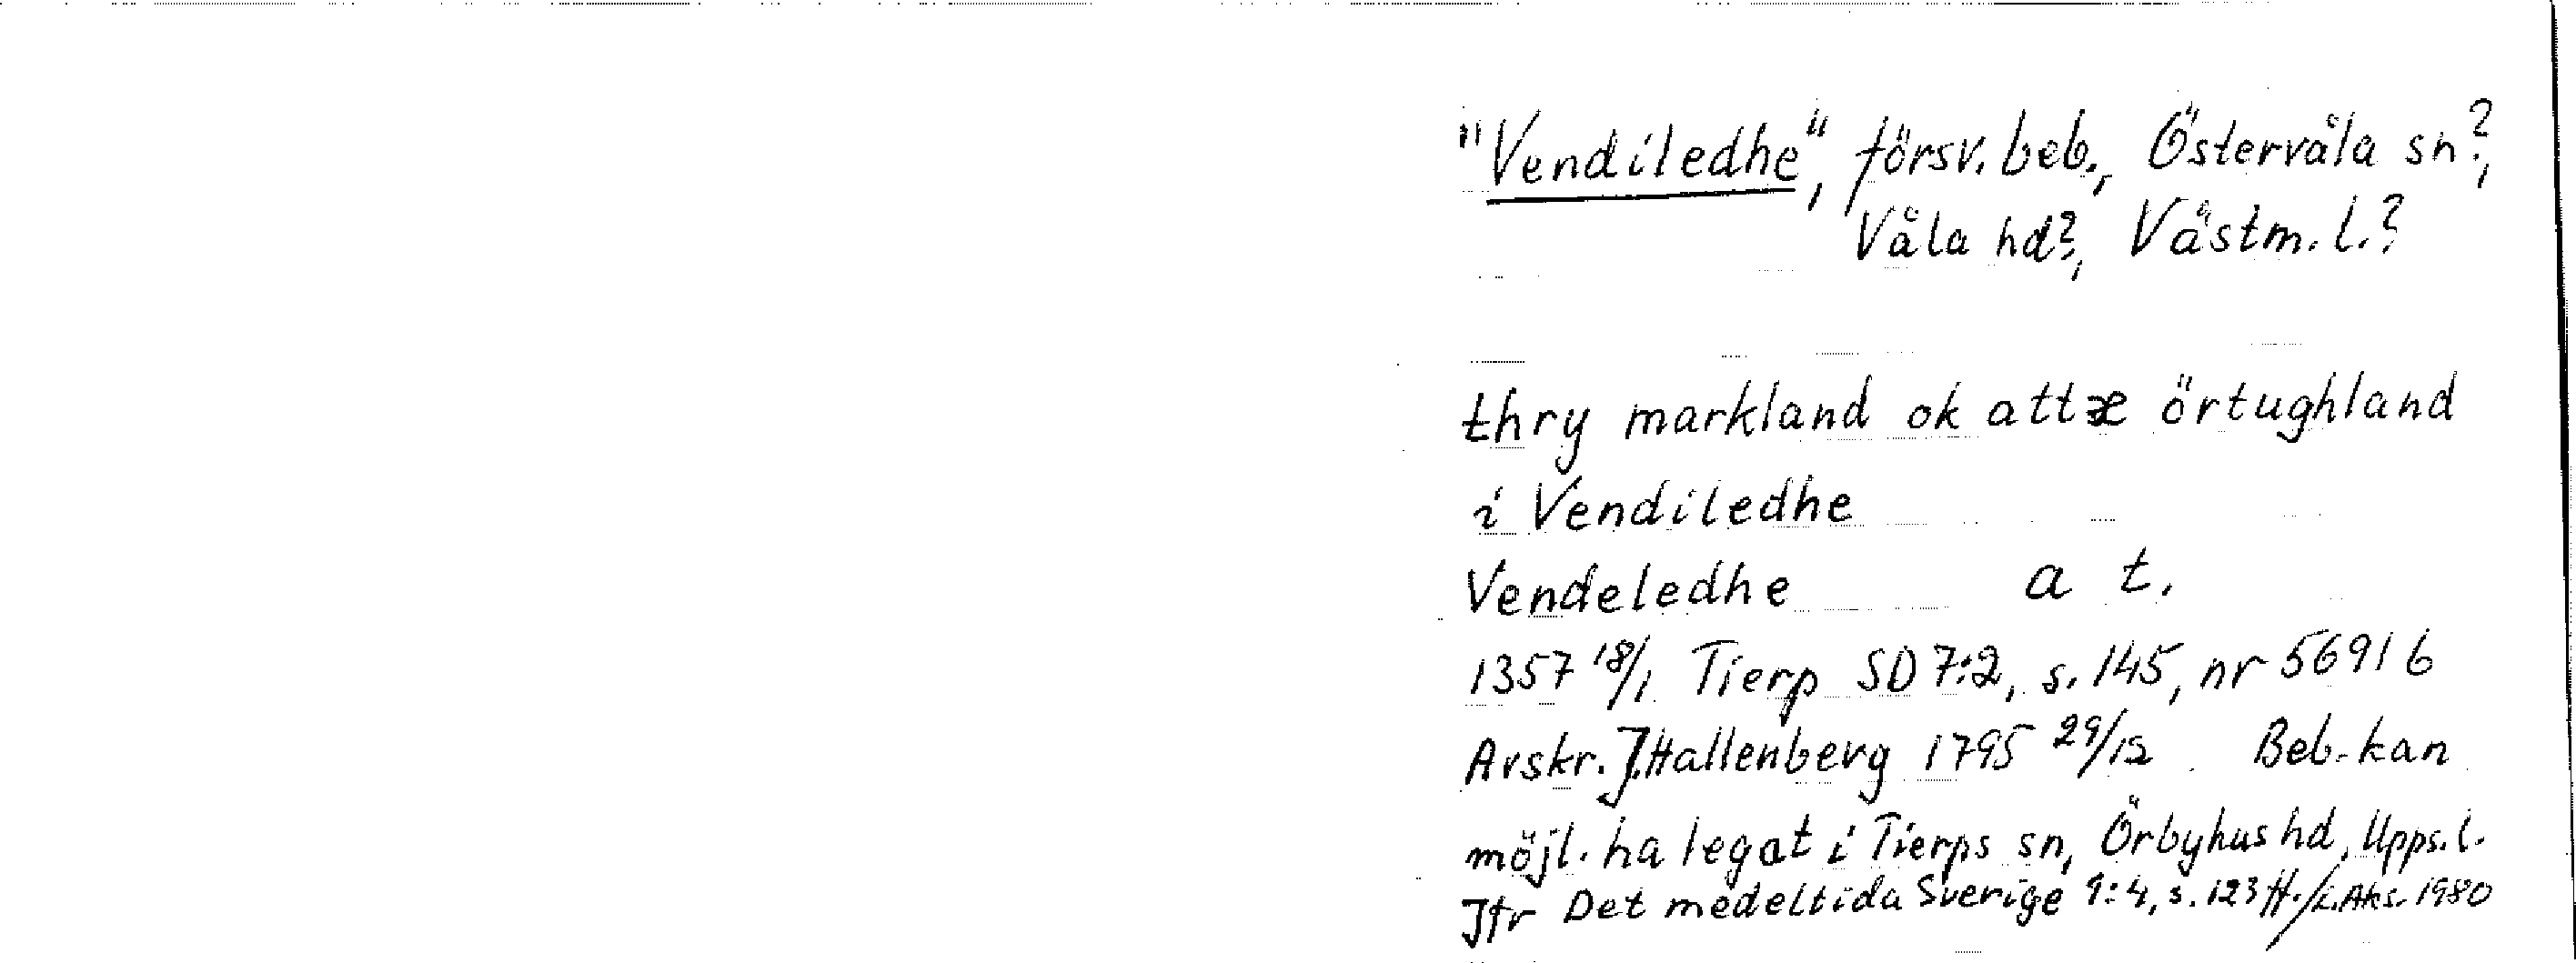 "Vendiledhe", försv. beb., Östervåla sn?,
Våla hd?, Västm. l.?
thry markland ok attæ örtughland
i Vendiledhe
Vendeledhe a t.
1357 18/1 Tierp SD 7:2, s. 145, nr 5691 b
Avskr. J. Hallenberg 1795 29/12 Beb. kan
möjl. ha legat i Tierps sn, Örbyhus hd, Upps. l.
Jfr Det medeltida Sverige 1:4, s. 123 ff. / L. Aks. 1980